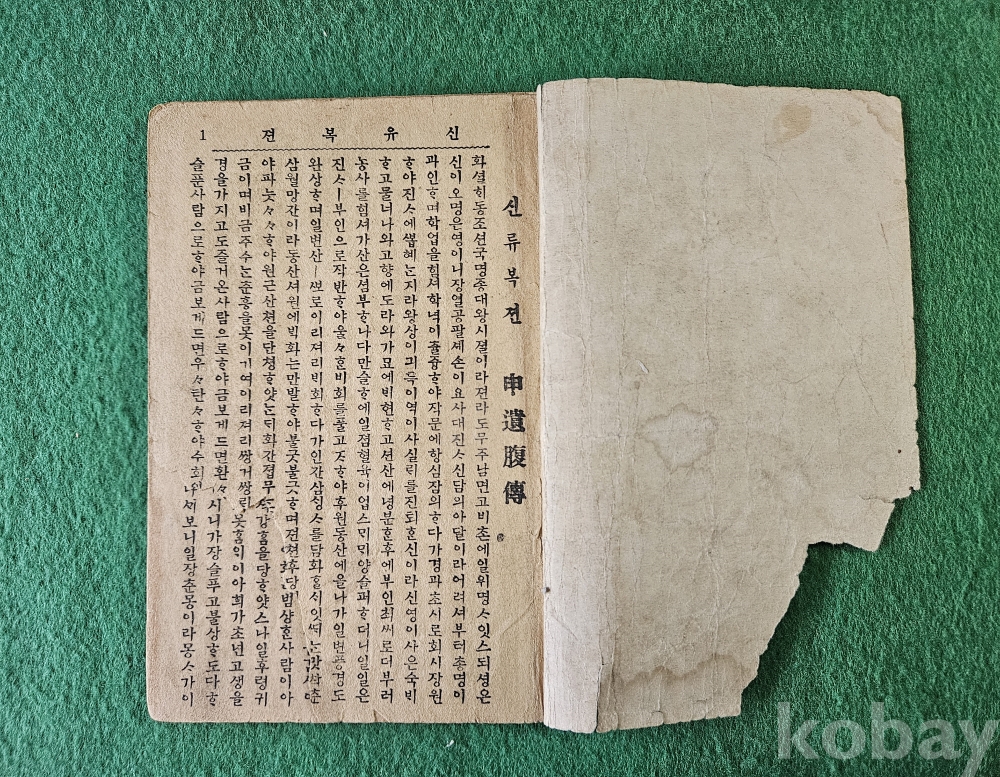 신유복젼 1
신류복젼 申遺腹傳
화셜ᄒᆡ동조션국명종대왕시졀이라젼라도무주남면고비촌에일위명ᄉᆞ잇스되셩은
신이오명은영이니장열공팔셰손이요사대진ᄉᆞ신담의아달이라어려셔부터총명이
과인ᄒᆞ며학업을힘셔학녁이츌즁ᄒᆞ야작문에항심잠의ᄒᆞ다가경과초시로회시장원
ᄒᆞ야진ᄉᆞ에ᄲᅩᆸ혜는지라왕상이긔특이역이사실ᄅᆡ를진퇴ᄒᆞᆫ신이라신영이사은숙ᄇᆡ
ᄒᆞ고물너나와고향에도라와가묘에ᄇᆡ현ᄒᆞ고션산에녕분ᄒᆞᆫ후에부인최씨로더부러
농사를힘셔가산은셤부ᄒᆞ나다만슬ᄒᆞ에일졈혈육이업스ᄆᆡᄆᆡ양슬퍼ᄒᆞ더니일일은
진ᄉᆞㅣ부인으로작반ᄒᆞ야울々ᄒᆞᆫ비회를풀고ᄌᆞᄒᆞ야후원동산에올나가일변풍경도
완상ᄒᆞ며일변산ㅣᄲᅩ로이리져리ᄇᆡ회ᄒᆞ다가인간삼ᄉᆡᆼᄉᆞ를담화ᄒᆞᆯᄉᆡ잇ᄯᆡ는맛ᄎᆞᆷ춘
삼월망간이라동산셔원에ᄇᆡᆨ화는만발ᄒᆞ야불긋불긋ᄒᆞ며젼쳔후당범상ᄒᆞᆫ사람이아
야파릇々々ᄒᆞ야원근산쳔을단쳥ᄒᆞ얏는ᄃᆡ화간졉무 감흥을당ᄒᆞ얏스나일후령귀
금이며비금주수는춘흥을못이기여이리져리쌍거쌍ᄅᆡ 이아희가초년고생을
경을가지고도즐거온사람으로ᄒᆞ야금보게드면환々 시니가장슬푸고불상ᄒᆞ도다ᄒᆞ
슬푼사람으로ᄒᆞ야금보게드면우々탄々ᄒᆞ야수회 세보니일장춘몽이라몽ᄉᆞ가이
kobay